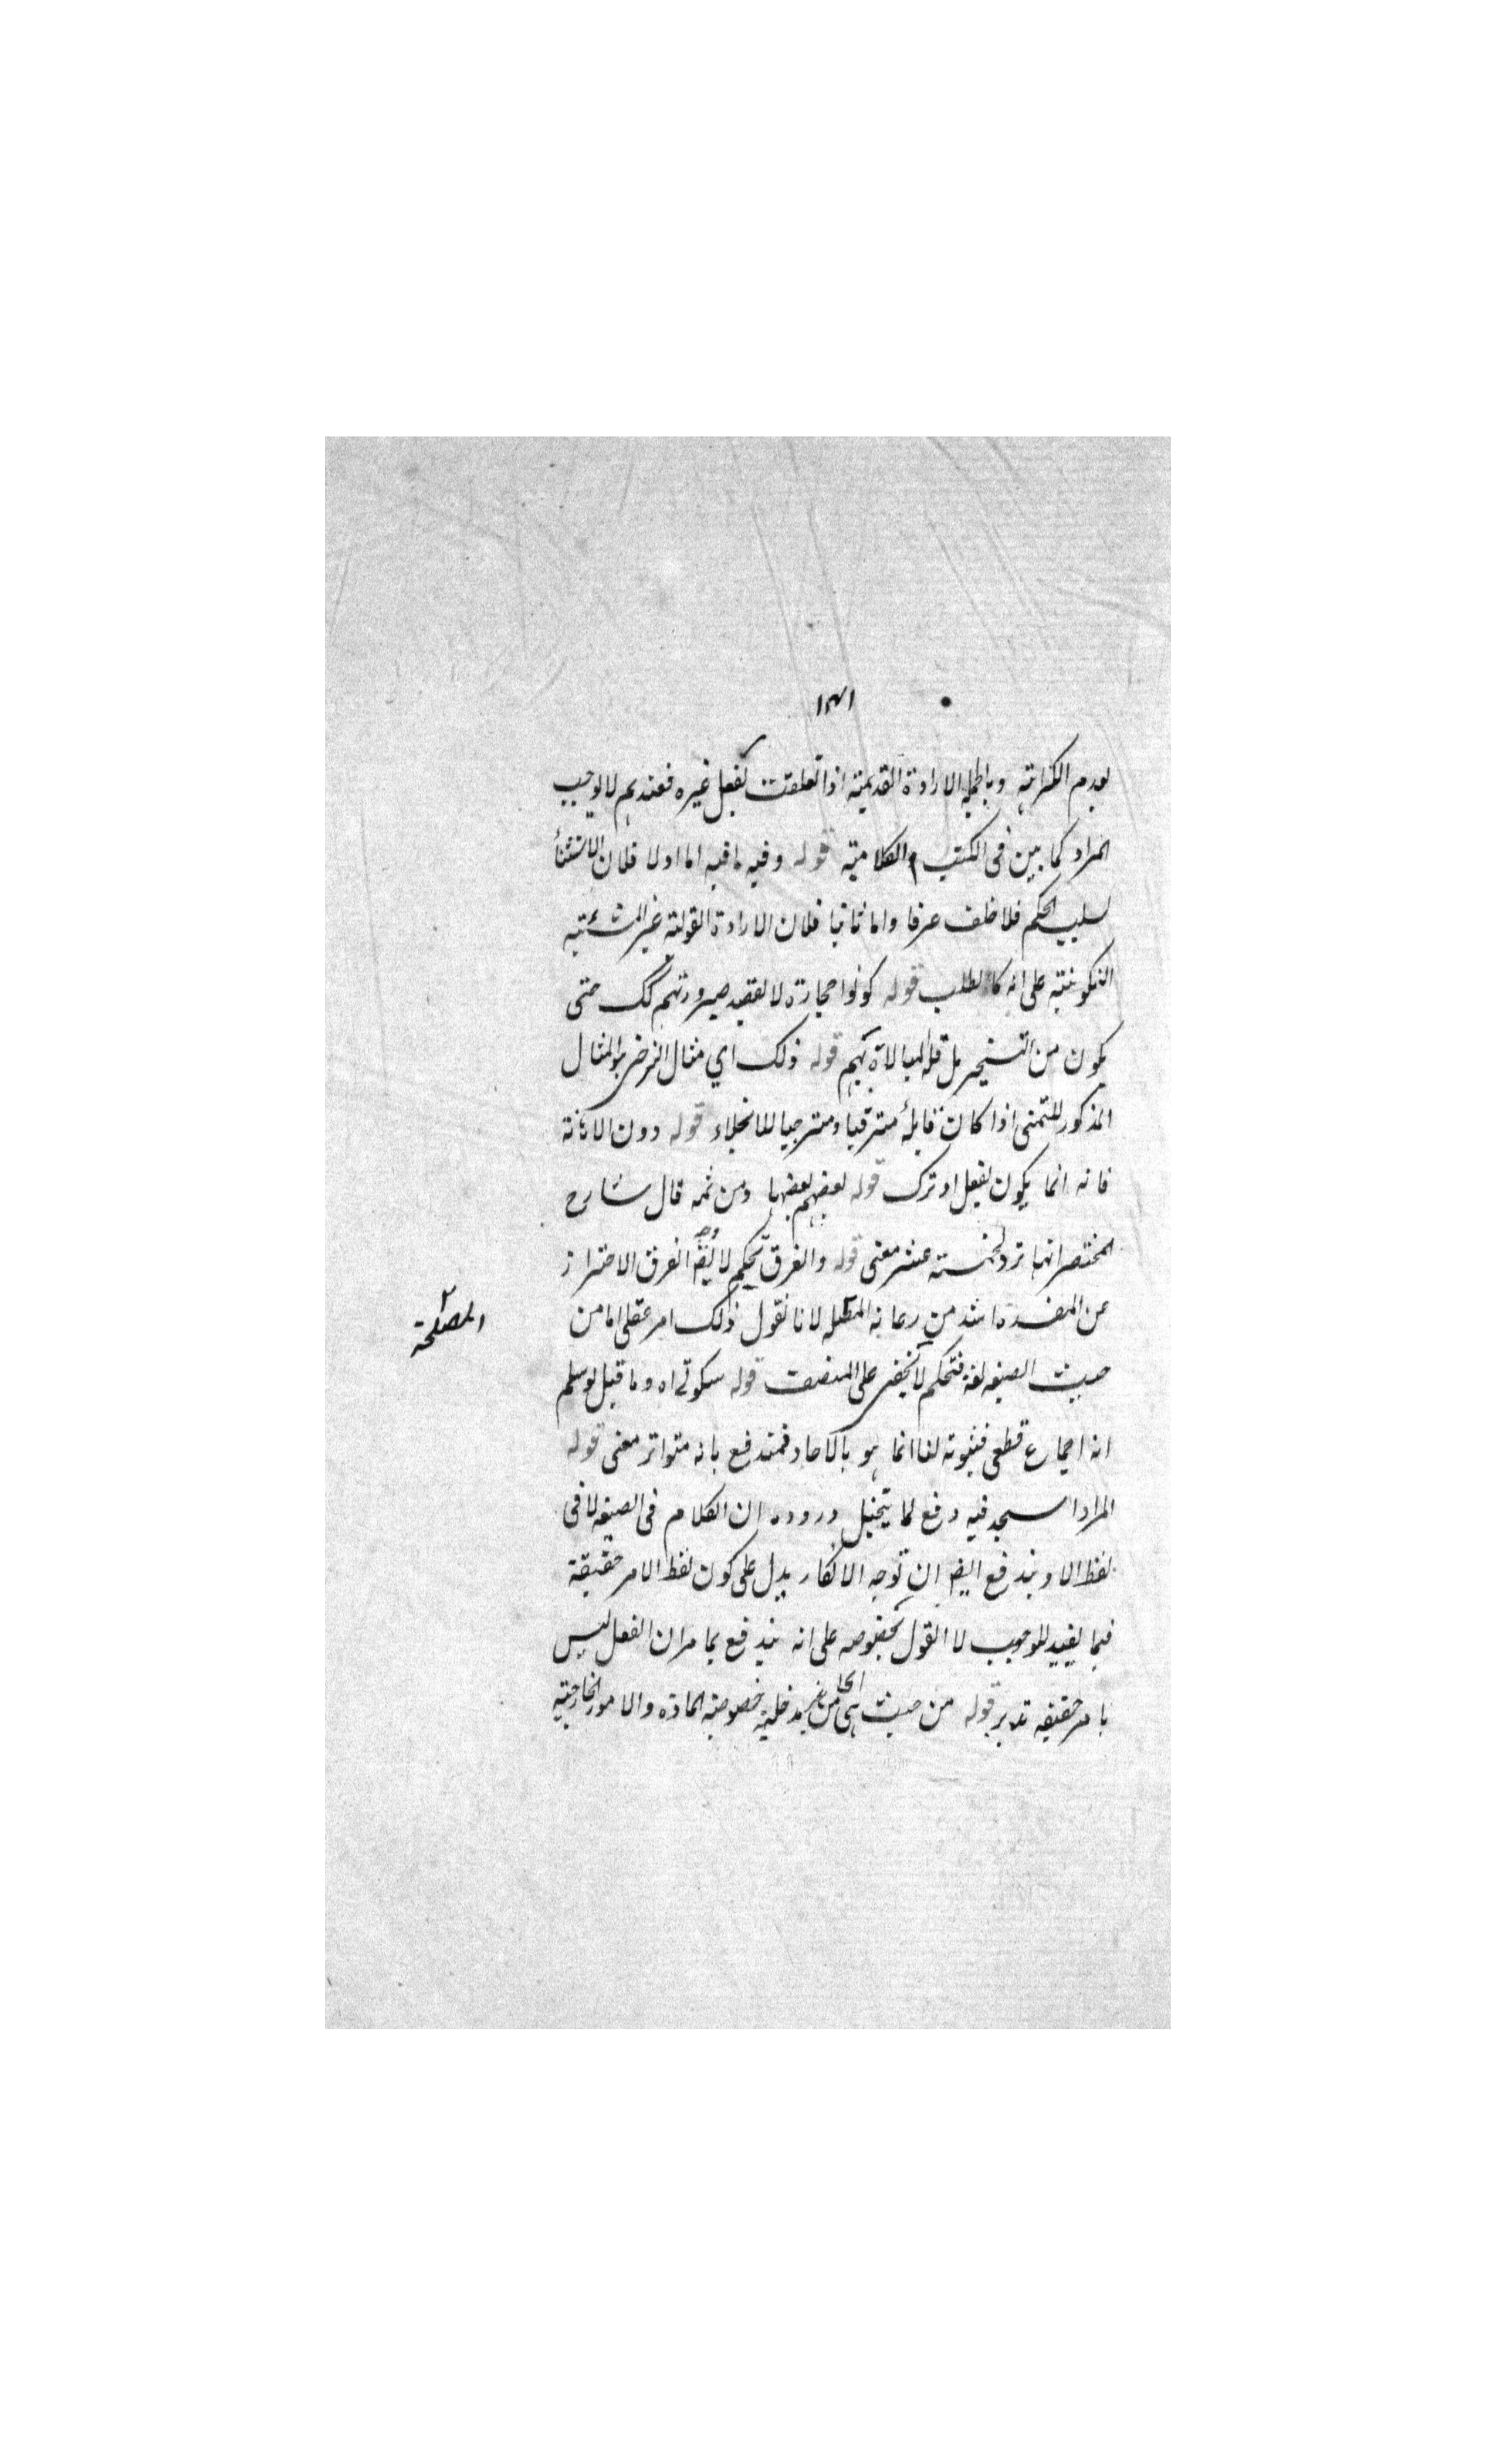 ١٣١
لعدم الكراهة وبالجملة الارادة القديمة اذا تعلقت بفعل غيره فعندهم لا يوجب
المراد كما بين فى الكتب الكلامية قوله وفيه ما فيه اما اولا فلان الاستثنأ
لسلب الحكم فلا خلف عرفا واما ثانيا فلان الارادة القولية غير المشيئية
التكوينية على انه كالطلب قوله كونوا حجارة لا لقصد صيرورتهم كك حتى
يكون من التسخير بل قلة المبالاة بهم قوله ذلك اي مثال الترجى والمثال
المذكور للتمنى اذا كان قايله مترقبا ومترجيا للانجلاء قوله دون الاهانة
فانه انما يكون بفعل او ترك قوله بعضهم بعضها ومن ثمه قال شارح
المختصر انها ترد لخمسة عشر معنى قوله والفرق تحكم لا يقم الفرق الاحتراز
عن المفسدة اشد من رعاية المصلحة لانا نقول ذلك امر عقلى اما من
المصلحة
حيث الصيغه لغة فتحكم لا يخفى على المنصف قوله سكوتى اه وما قيل لو سلم
انه اجماع قطعى فثبوته لنا انما هو بالآحاد فمندفع بانه متواتر معنى قوله
المراد اسجد فيه دفع لما يتخيل وروده ان الكلام فى الصيغه لا فى
لفظ الا ويندفع ايضا ان توجه الانكار يدل على كون لفظ الامر حقيقة
فيما يفيد للوجوب لا القول بخصوصه على انه يندفع بما مر ان الفعل ليس
بامر حقيقه تدبر قوله من حيث هى من غير مدخلية خصوصية المادة والامور الخارجية